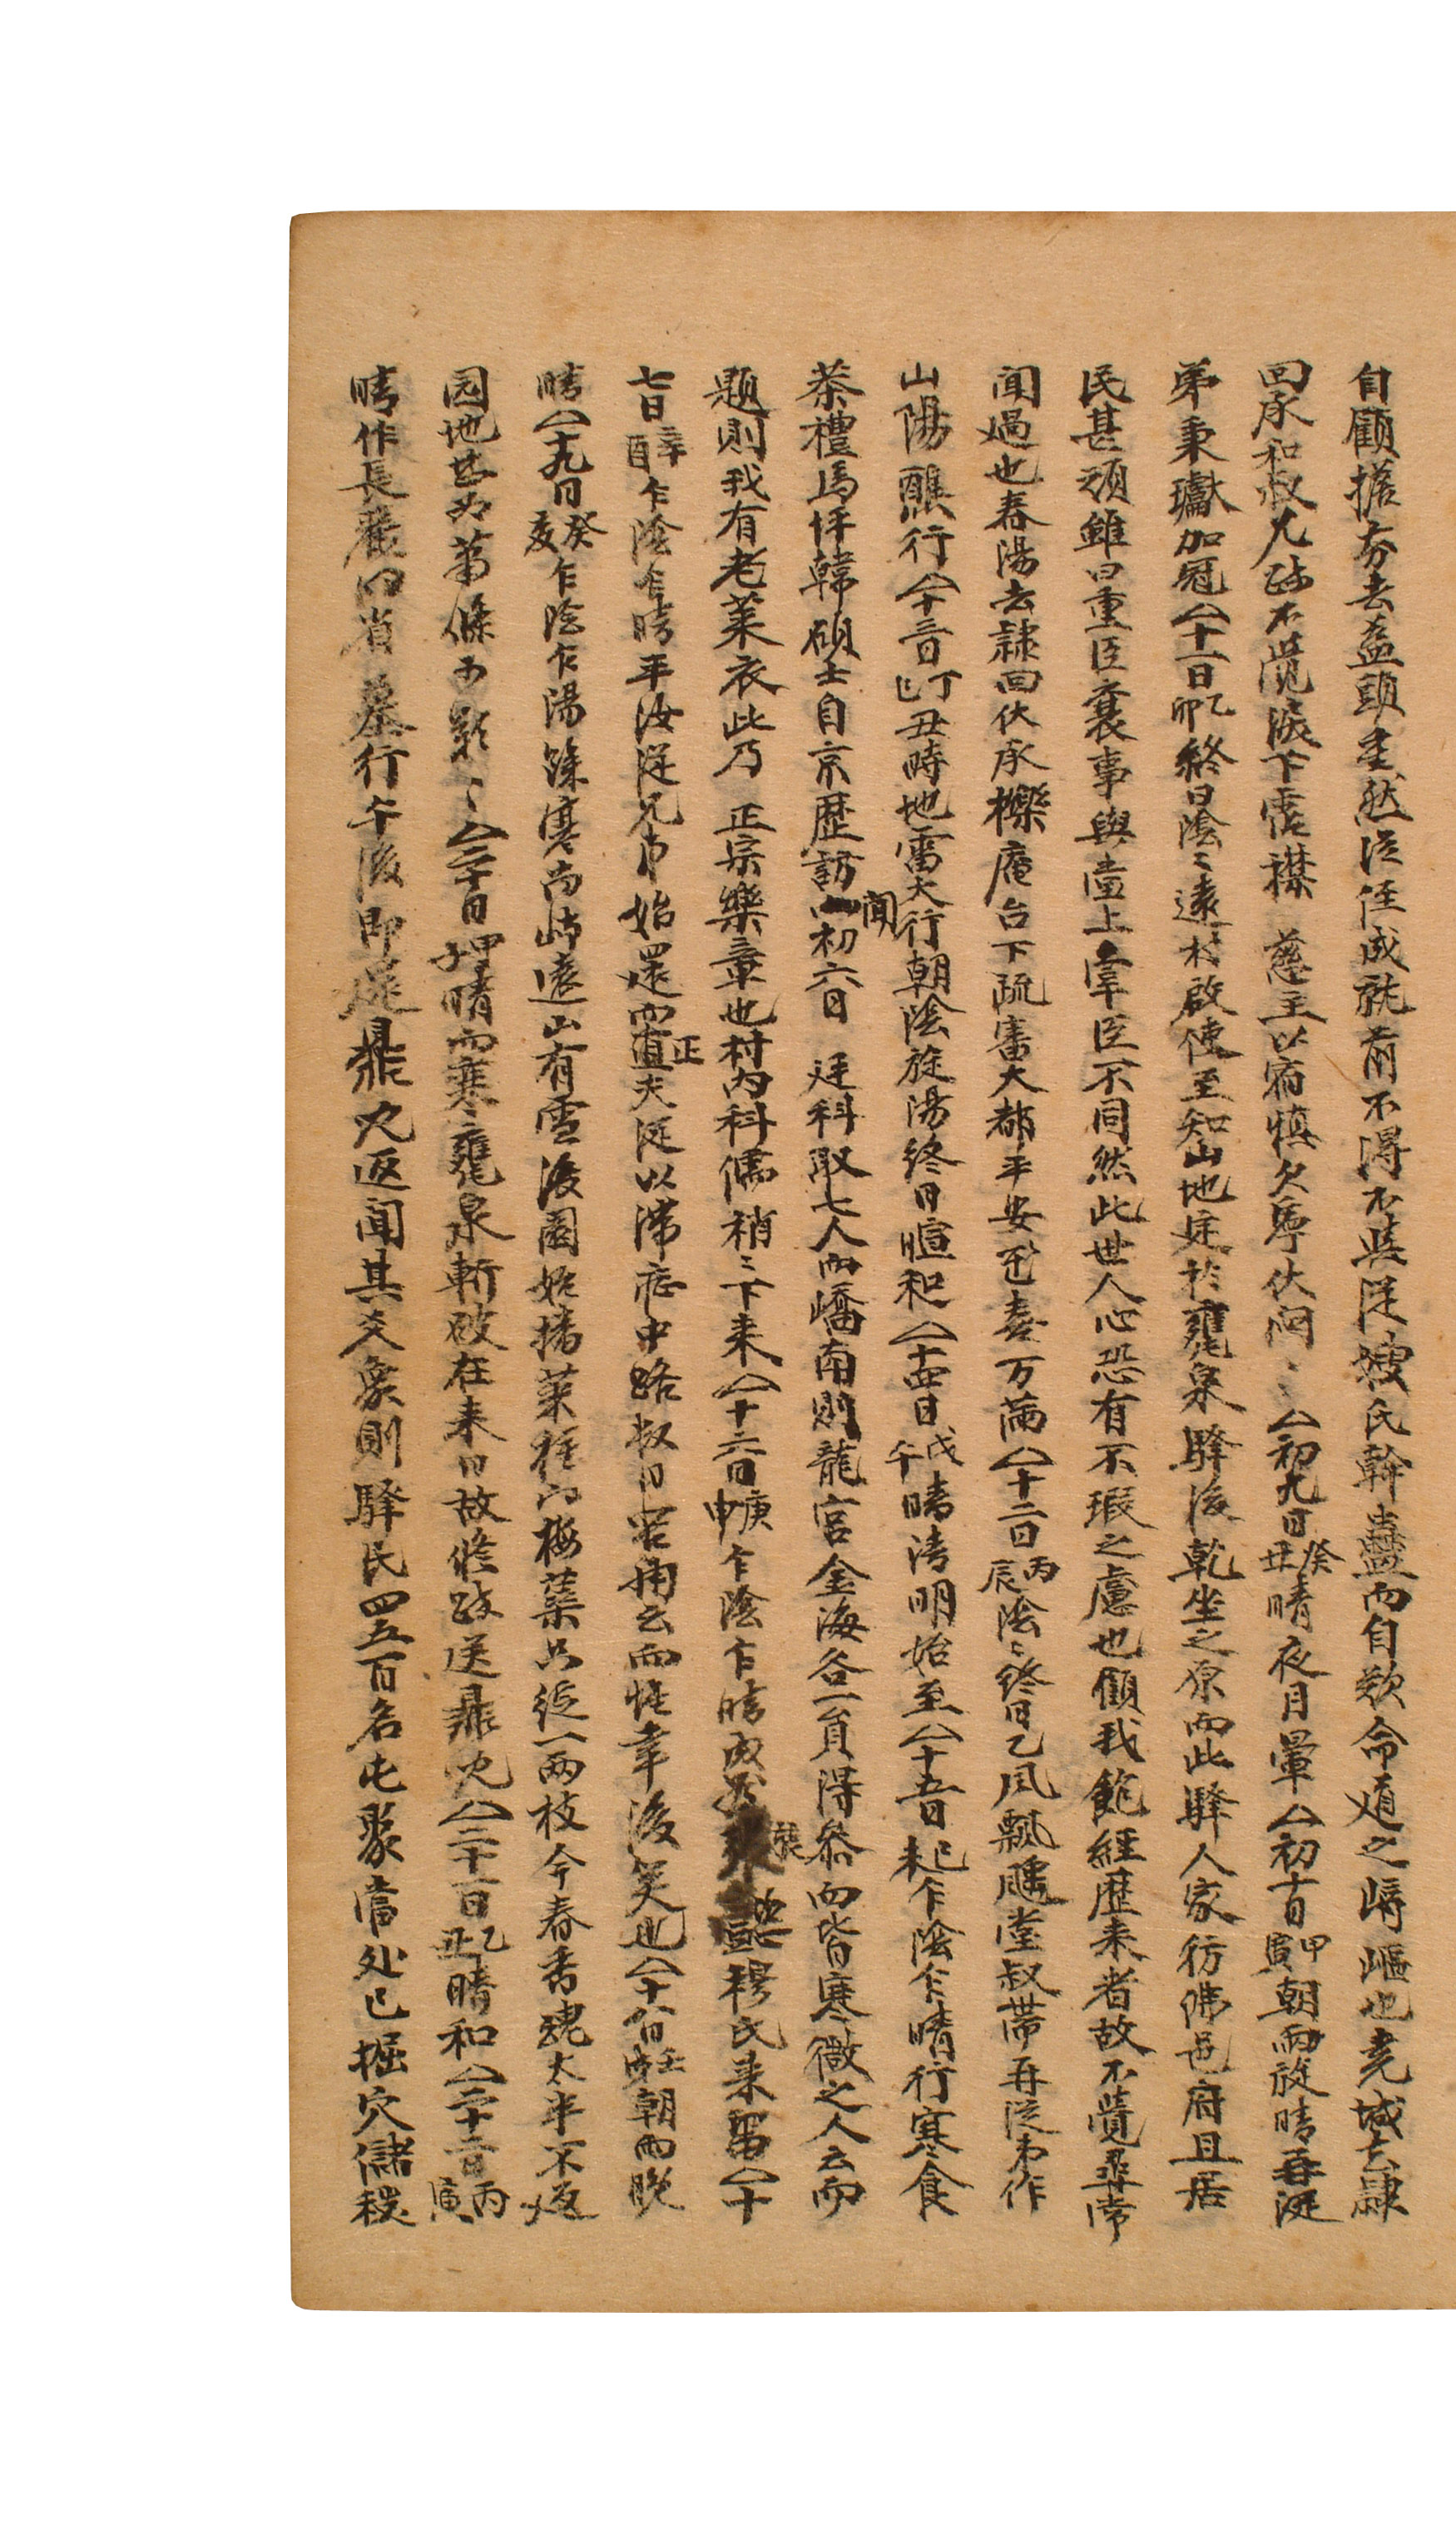 自顧擔夯去益頭童然從侄成就前不得不與從嫂氏幹蠱而自歎命途之崎嶇也堯城去隷
回承和叔兄疏不覺淚下霑襟 慈主以宿愼欠寧伏悶ミミ△初九日癸丑晴夜月暈△初十日甲寅朝雨旋晴再從
弟秉瓛加冠△十一日乙卯終日陰ミ遠村啟使至知山地定於甕泉驛後乾坐之原而此驛人家彷彿邑府且居
民甚頑雖曰重臣襄事與堂上宰臣不同然此世人心恐有不瑕之慮也顧我飽經歷來者故不覺尋常
聞過也春陽去隷回伏承櫟庵台下疏審大都平安 万萬△十二日丙辰陰ミ終日乙風飄颺堂叔帶再從弟作
山陽醮行△十三日丁巳丑時地雷大行朝陰旋陽終日暄和△十四日戊午晴清明始至△十五日己未乍陰乍晴行寒食
茶禮馬伻韓碩士自京歷訪聞初六日 廷科取七人而嶠南則龍宮金海各一員得參而皆寒微之人云而
題則我有老萊衣此乃 正宗樂章也村內科儒稍ミ下來△十六日庚申乍陰乍晴 張 穆氏來留△十
七日辛酉乍陰乍晴平汝從兄弟始還而正夫從以滯症中路救日 云而怪幸後笑也△十八日壬戌朝雨晚
晴△十九日癸亥乍陰乍陽餘寒尚峙遠山有雪後園始播菜種 梅蕊只綻一兩枝今春香魂太半不返
園地甚 蕭條 歎ミ△二十日甲子晴而寒甕泉斬破在來日故修疏送鼎兄△二十一日乙丑晴和△二十二日丙寅
晴作長巖 省墓行午後即旋鼎兄返聞其爻象則驛民四五百名屯聚當處已掘穴儲穢